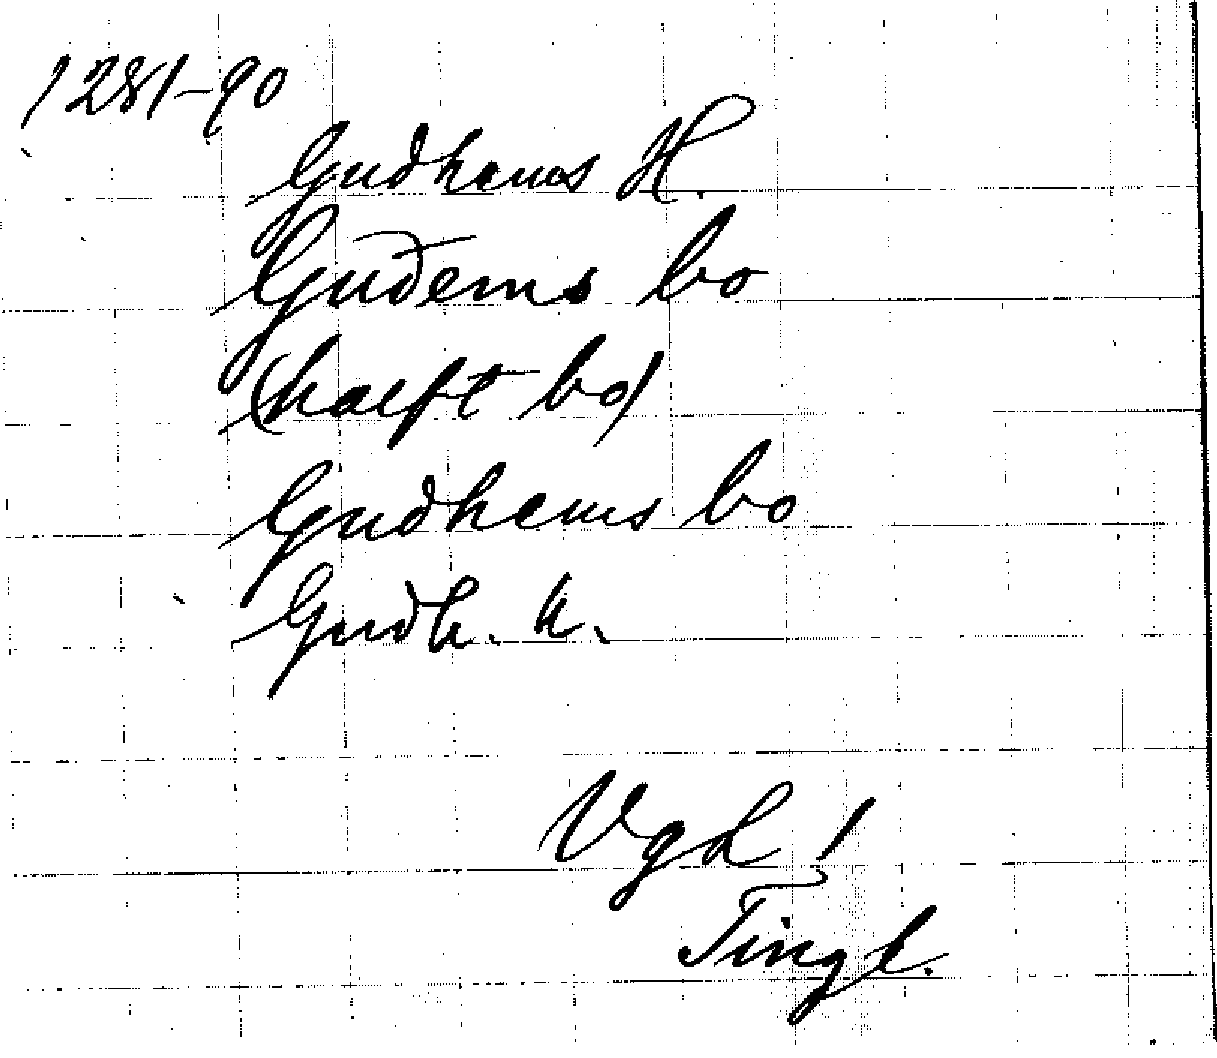 1281-90
Gudhems H.
Gudems bo
(halft bo)
Gudhems bo
Gudh. h.
VgL 1
Tingl.